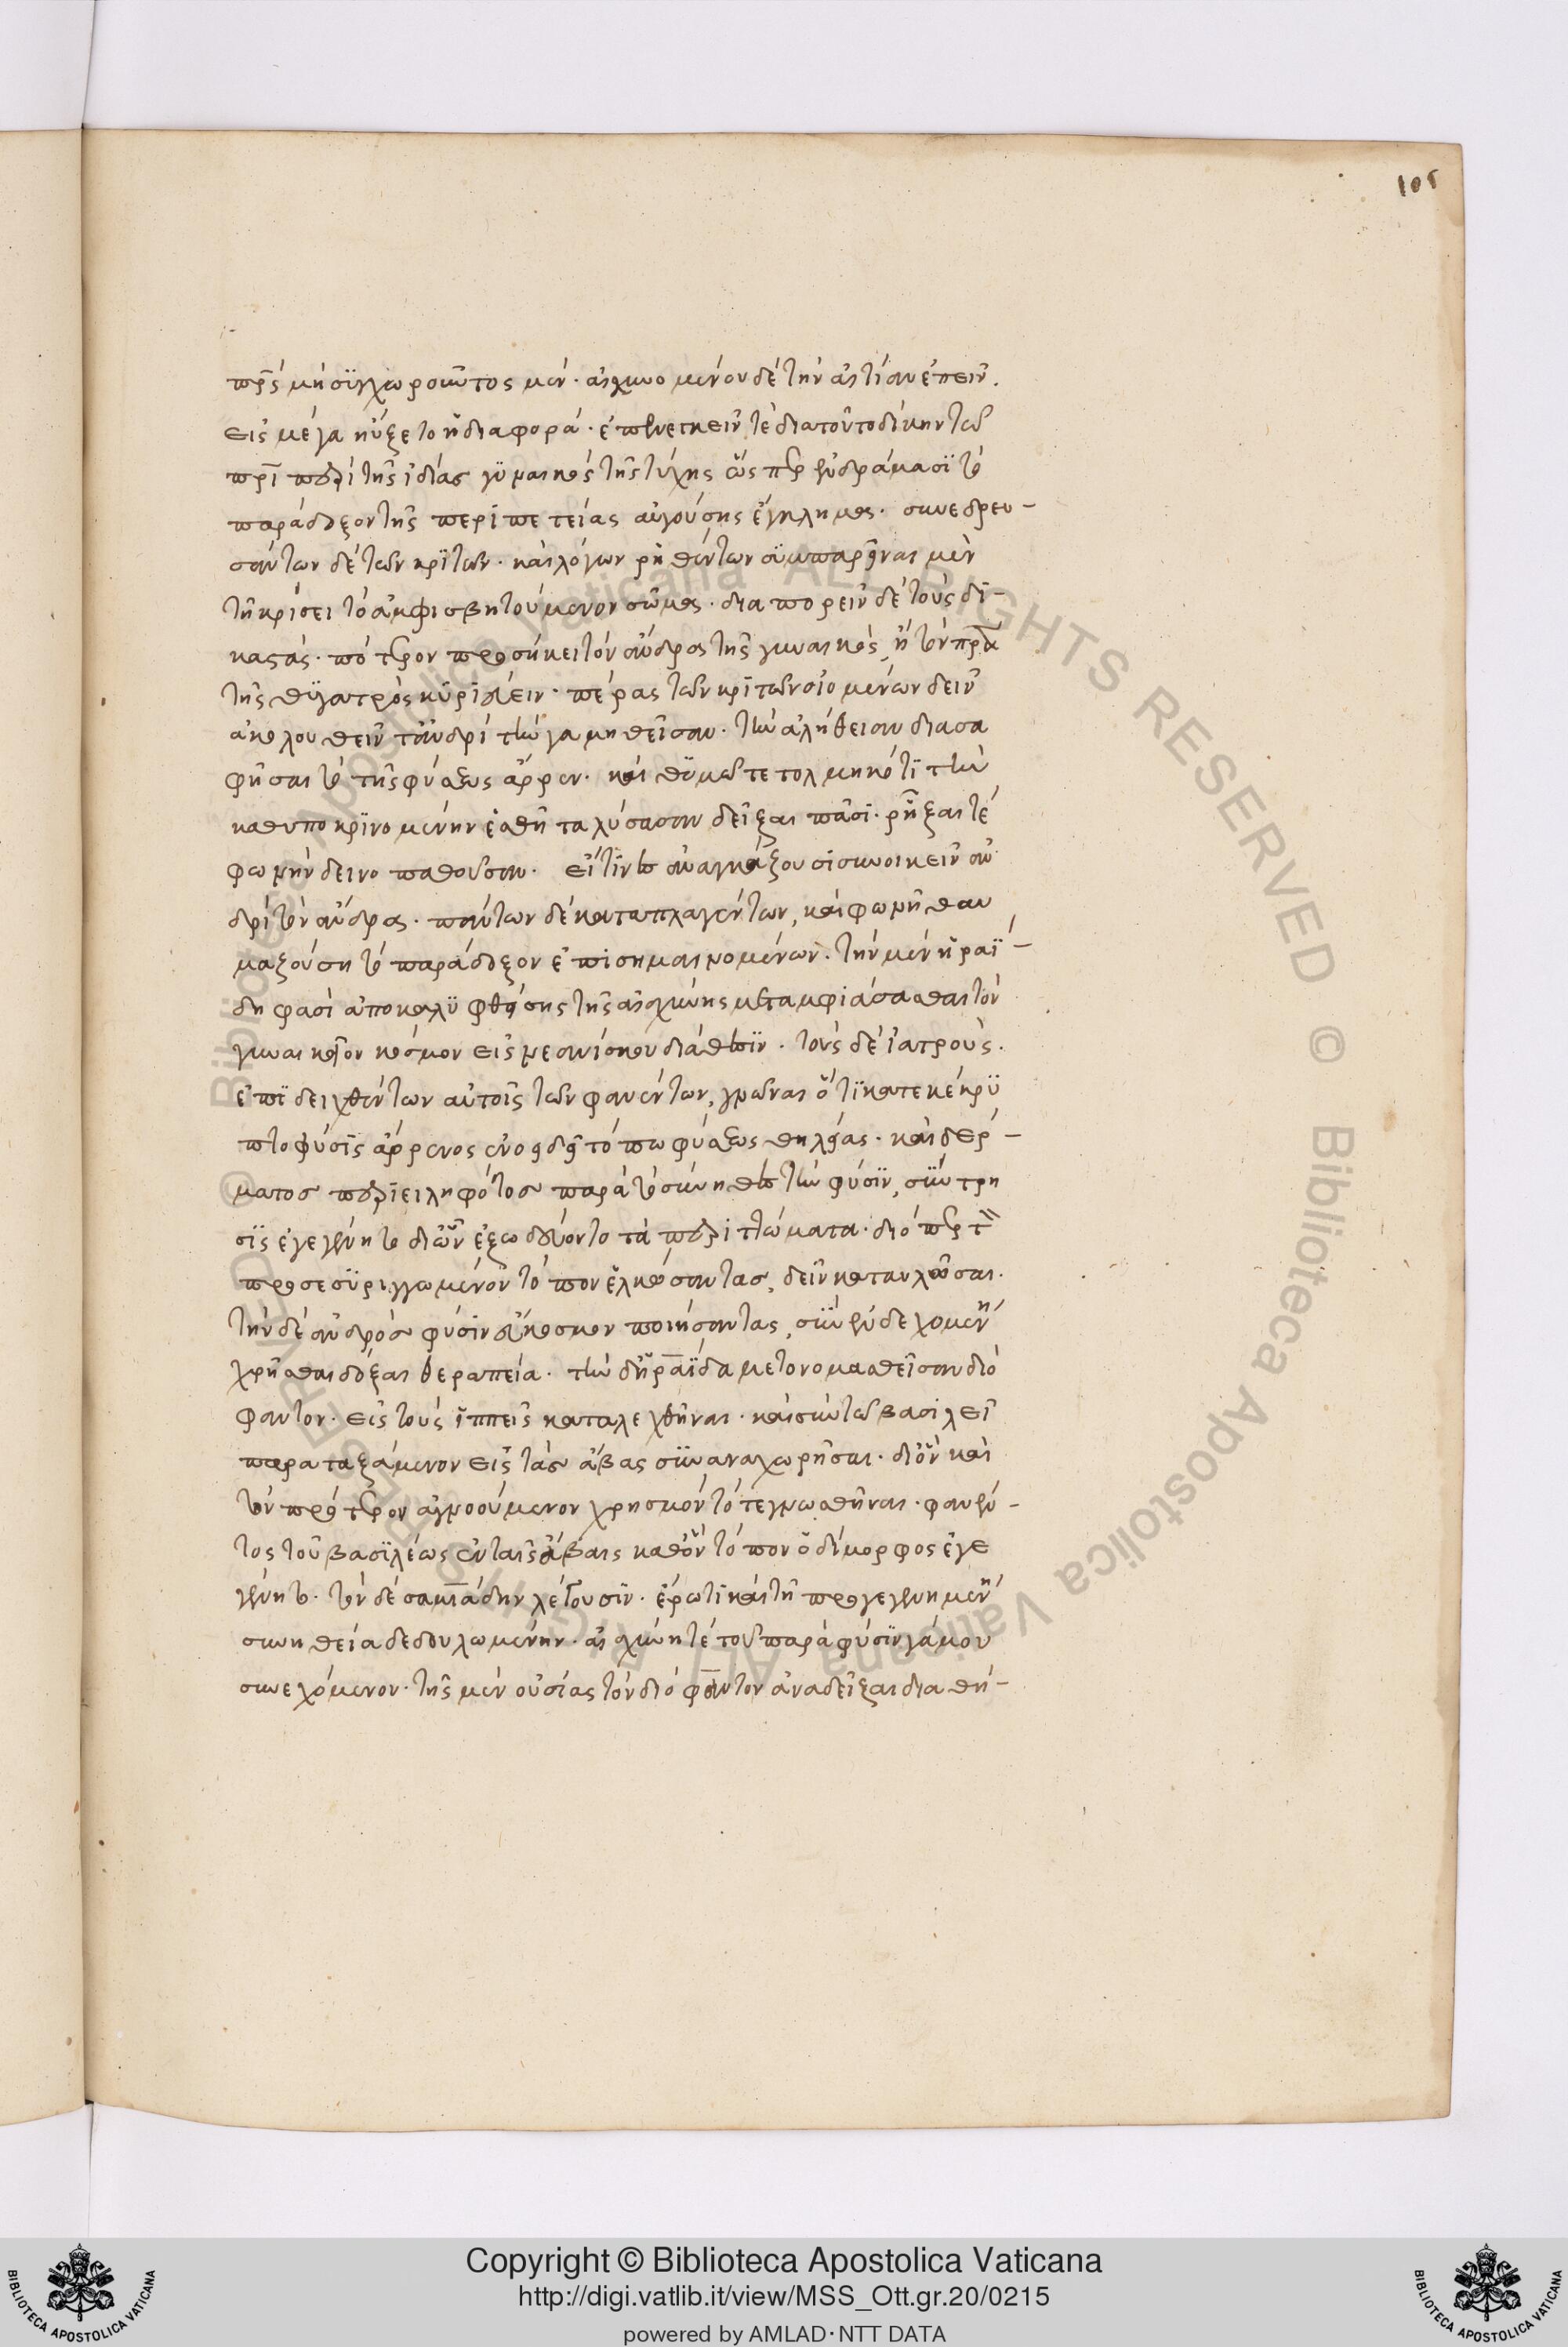 105
πρ̅ς μὴ συγχωροῦντος μὲν· αἰσχυνομένου δὲ τὴν αἰτίαν εἰπεῖν.
εἰς μέγα ηὔξετο ἡ διαφορά· ἐπενεγκεῖν τὲ διατοῦτο δίκην τῶ
πρὶ περὶ τῆς ἰδίας γυναικὸς τῆς τύχης ὥσπερ ἐν δράμασϊ τὸ
παράδοξον τῆς περιπετείας ἀγούσης ἔγκλημα. συνεδρευ-
σάντων δὲ τῶν κρϊτῶν. καὶ λόγων ρηθέντων συμπαρεῖναι μὲν
τῆ κρίσει τὸ ἀμφισβητούμενον σῶμα. διαπορεῖν δὲ τοὺς δι-
καστάς. πότερον προσήκει τὸν ἄνδρα τῆς γυναικὸς, ἢ τὸν πρ̅α
τῆς θυγατρὸς κυριεύειν. πέρας τῶν κριτῶν οἰομένων δεῖν
ἀκολουθεῖν τἀνδρὶ τὴν γαμηθεῖσαν. τὴν ἀλήθειαν διασα
φῆσαι τὸ τῆς φύσεως ἄρρεν. καὶ θυμῶ τετολμηκότϊ τὴν
καθυποκρινομένην ἐσθῆτα λύσασαν δεῖξαι πᾶσι. ρῆξαι τὲ
φωνὴν δεινοπαθοῦσαν. εἴ τινες ἀναγκάζουσι συνοικεῖν ἀν
δρὶ τὸν ἄνδρα. πάντων δὲ καταπλαγέντων, καὶ φωνῆ θαυ
μαζούση τὸ παράδοξον ἐπισημαινομένων. τὴν μὲν ἡραΐ-
δη φασὶ ἀποκαλυφθείσης τῆς αἰσχύνης μεταμφιάσασθαι τὸν
γυναικεῖον κόσμον εἰς νεανίσκου διάθεσϊν. τοὺς δὲ ἰατροὺς.
ἐπιδειχθέντων αὐτοῖς τῶν φανέντων, γνῶναι ὅτϊ κατεκέκρυ
πτο φύσϊς ἄρρενος ἐν ὠοειδεῖ τόπω φύσεως θηλείας. καὶ δέρ-
ματος περιειληφότος παρὰ τὸ σύνηθες τὴν φύσϊν, σύντρη
σϊς ἐγεγένητο δι' ὧν ἐξωδεύοντο τὰ περιττώματα. διόπερ τ
προσεσυριγγωμένον τόπον ἑλκώσαντας, δεῖν κατουλῶσαι.
τὴν δὲ ἀνδρὸς φύσιν εὔκοσμον ποιήσαντας, σὺν ἐνδεχομένη
χρῆσθαι δόξαι θεραπεία. τὴν δ' ἡραΐδα μετονομασθεῖσαν διό
φαντον. εἰς τοὺς ἵππεῖς καταλεχθῆναι. καὶ σὺν τῶ βασιλεῖ
παραταξάμενον εἰς τὰς ἄβας συναναχωρῆσαι. δι' ὃν καὶ
τὸν πρότερον ἀγνοούμενον χρησμὸν τότε γνωσθῆναι. φανέν-
τος τοῦ βασιλέως ἐν ταῖς ἄβαις καθ' ὃν τόπον ὁ δίμορφος ἐγε
γένητο. τὸν δὲ σαμιάδην λέγουσϊν. ἔρωτι καὶ τῆ προγεγενημένη
συνηθεία δεδουλωμένην. αἰσχύνη τὲ τοῦ παρὰ φύσϊν γάμου
συνεχόμενον. τῆς μὲν οὐσίας τὸν διόφαντον ἀναδεῖξαι διαθή-
Copyright © Biblioteca Apostolica Vaticana
http://digi.vatlib.it/view/MSS_Ott.gr.20/0215
powered by AMLAD·NTT DATA